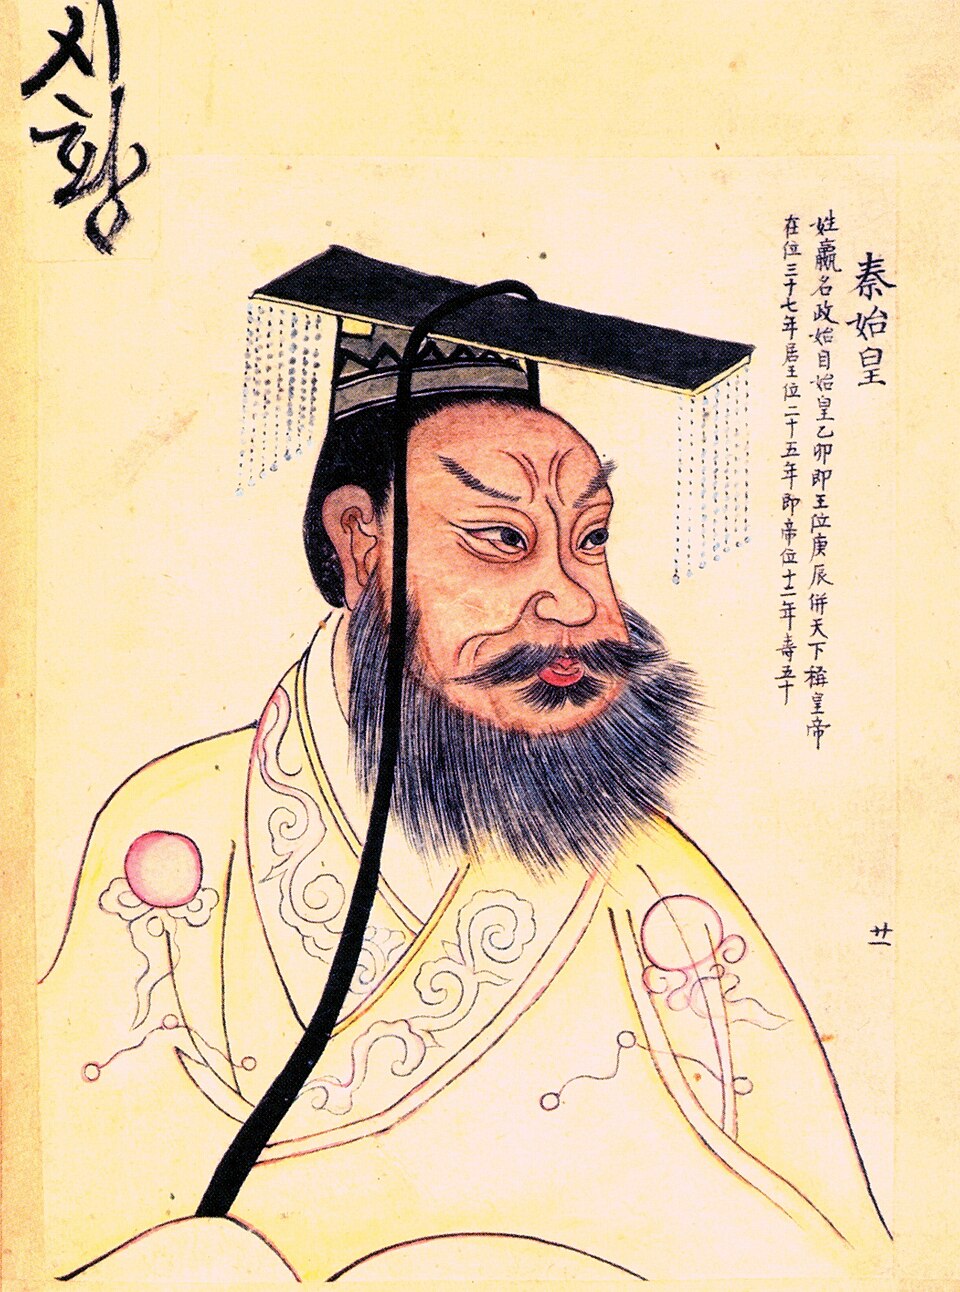 시황
秦始皇
姓嬴名政始自始皇乙卯即王位庚辰併天下稱皇帝
在位三十七年居王位二十五年即帝位十二年壽五十
廿一